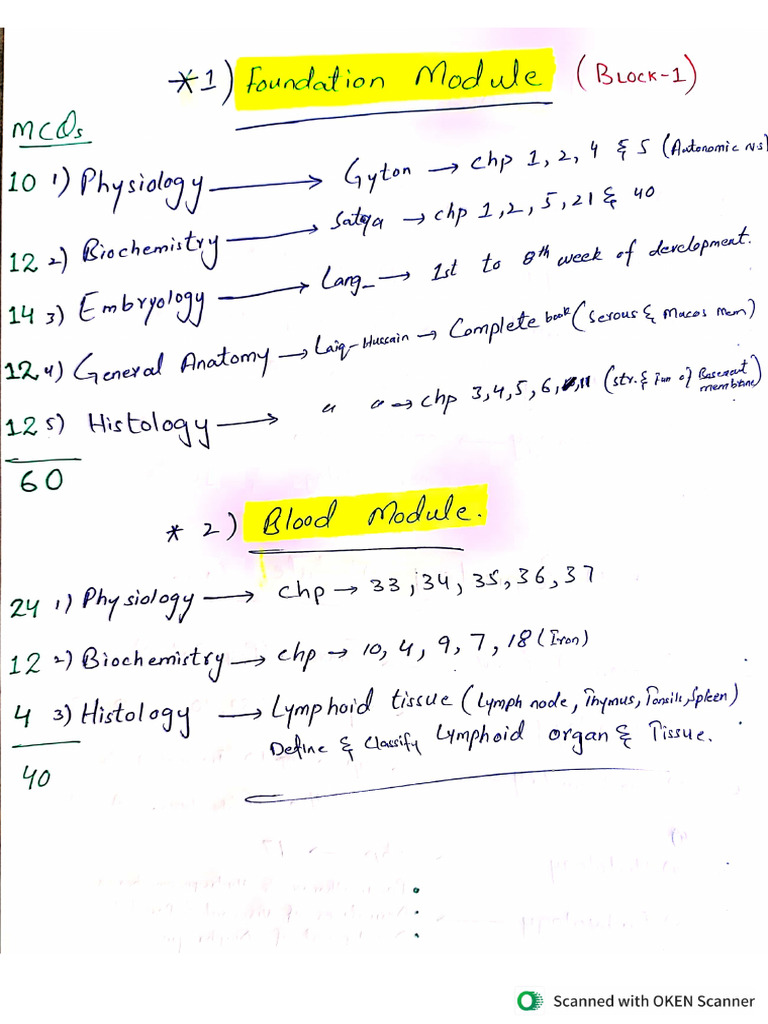 *1) Foundation Module (BLOCK-1)
MCQs
10 1) Physiology → Gyton → chp 1, 2, 4 & 5 (Autonomic NS)
12 2) Biochemistry → Satya → chp 1, 2, 5, 21 & 40
14 3) Embryology → Lang_ → 1st to 8th week of development.
12 4) General Anatomy → Laiq-Hussain → Complete book (Serous & Mucos Mem)
12 5) Histology → " " → chp 3, 4, 5, 6, 11 (str. & Fun of Basement membrane)
60
* 2) Blood Module.
24 1) Physiology → chp → 33, 34, 35, 36, 37
12 2) Biochemistry → chp → 10, 4, 9, 7, 18 (Iron)
4 3) Histology → Lymphoid tissue (Lymph node, Thymus, Tonsils, Spleen)
Define & Classify Lymphoid organ & Tissue.
40
Scanned with OKEN Scanner